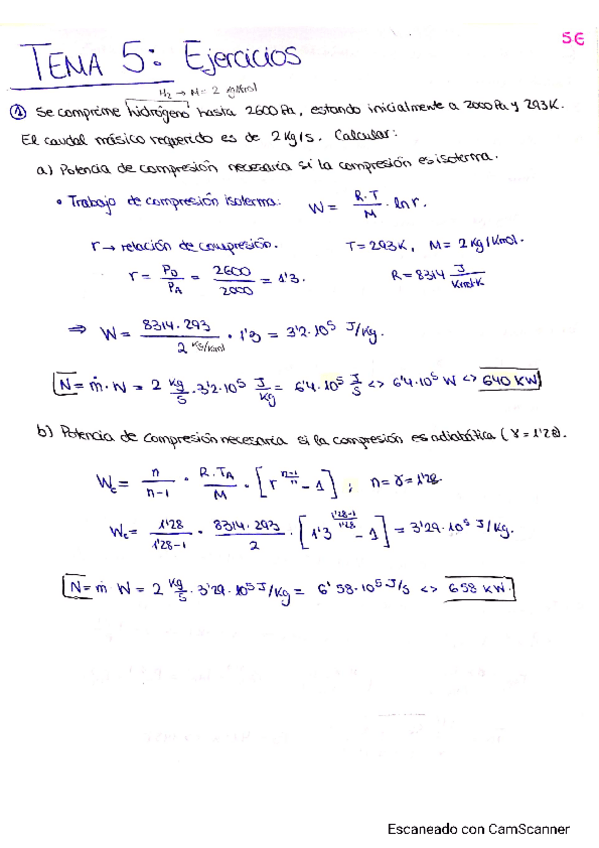 SE
TEMA 5: Ejercicios
H₂ → M = 2 g/mol
① Se comprime hidrógeno hasta 2600 Pa, estando inicialmente a 2000 Pa y 293K.
El caudal másico requerido es de 2 Kg/s. Calcular:
a) Potencia de compresión necesaria si la compresión es isoterma.
• Trabajo de compresión isoterma: W = R·T / M · ln r.
r → relación de compresión. T = 293K, M = 2 Kg/Kmol.
r = P_D / P_A = 2600 / 2000 = 1'3. R = 8314 J / Kmol·K
⇒ W = 8314·293 / 2 Kg/kmol · 1'3 = 3'2·10⁵ J/Kg.
N = ṁ·W = 2 Kg/s · 3'2·10⁵ J/Kg = 6'4·10⁵ J/s <> 6'4·10⁵ W <> 640 KW
b) Potencia de compresión necesaria si la compresión es adiabática (γ = 1'28).
W_c = n / n-1 · R·T_A / M · [r^(n-1/n) - 1] ; n = γ = 1'28.
W_c = 1'28 / 1'28-1 · 8314·293 / 2 · [1'3^(1'28-1/1'28) - 1] = 3'29·10⁵ J/Kg.
N = ṁ W = 2 Kg/s · 3'29·10⁵ J/Kg = 6'58·10⁵ J/s <> 658 KW.
Escaneado con CamScanner